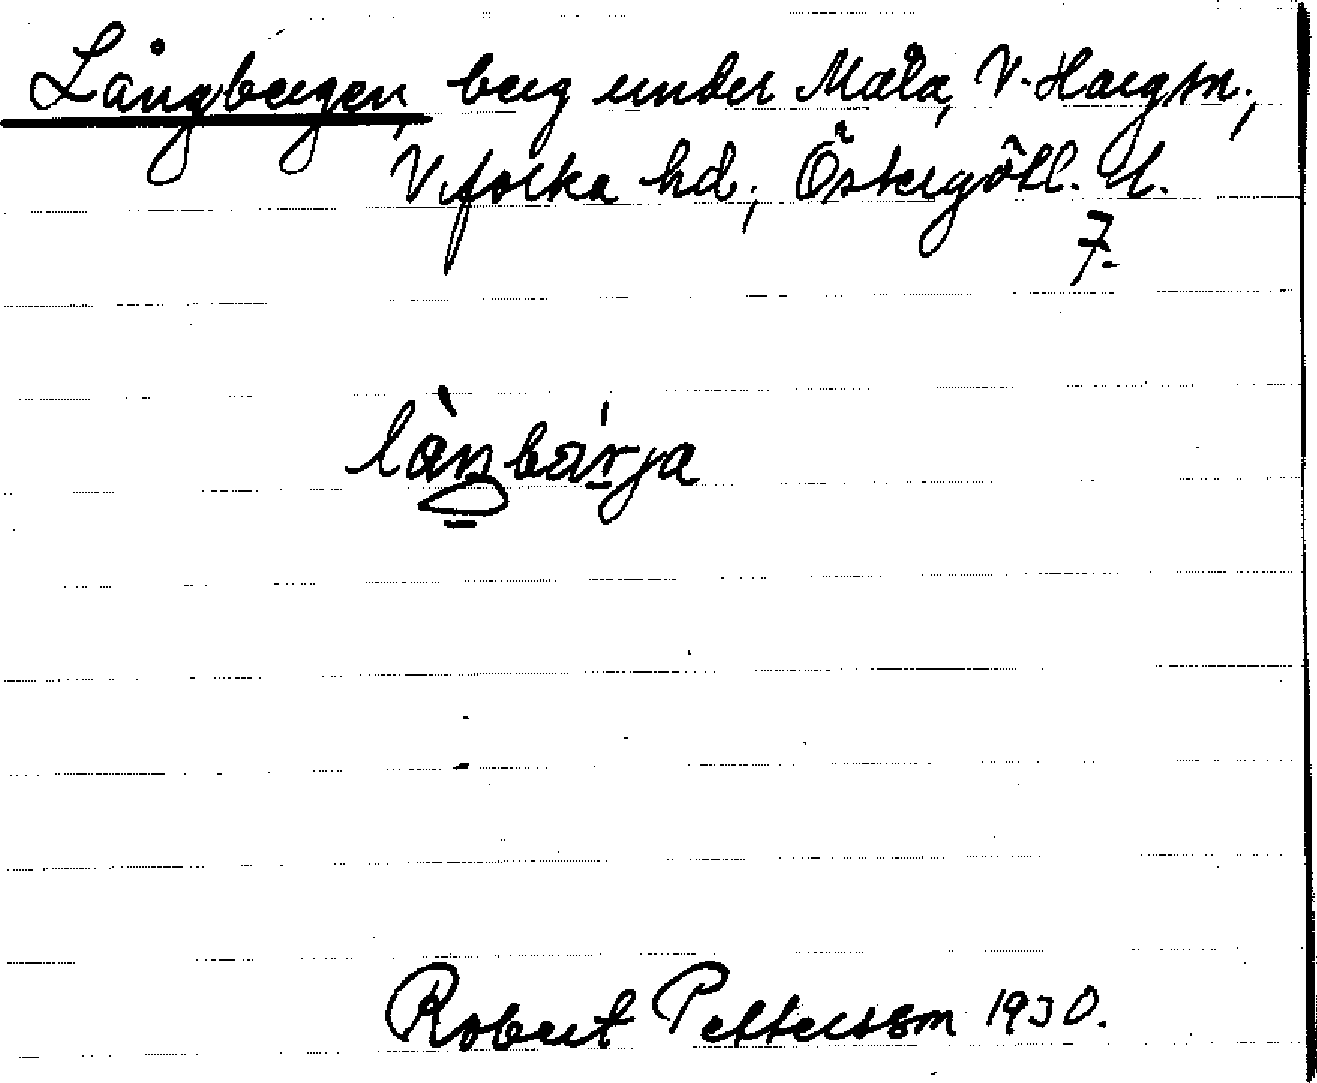 Långbergen, berg under Måla, V. Hargsn.,
Vifolka hd., Östergötl. l.
7.
lånbärja
Robert Pettersson 1930.